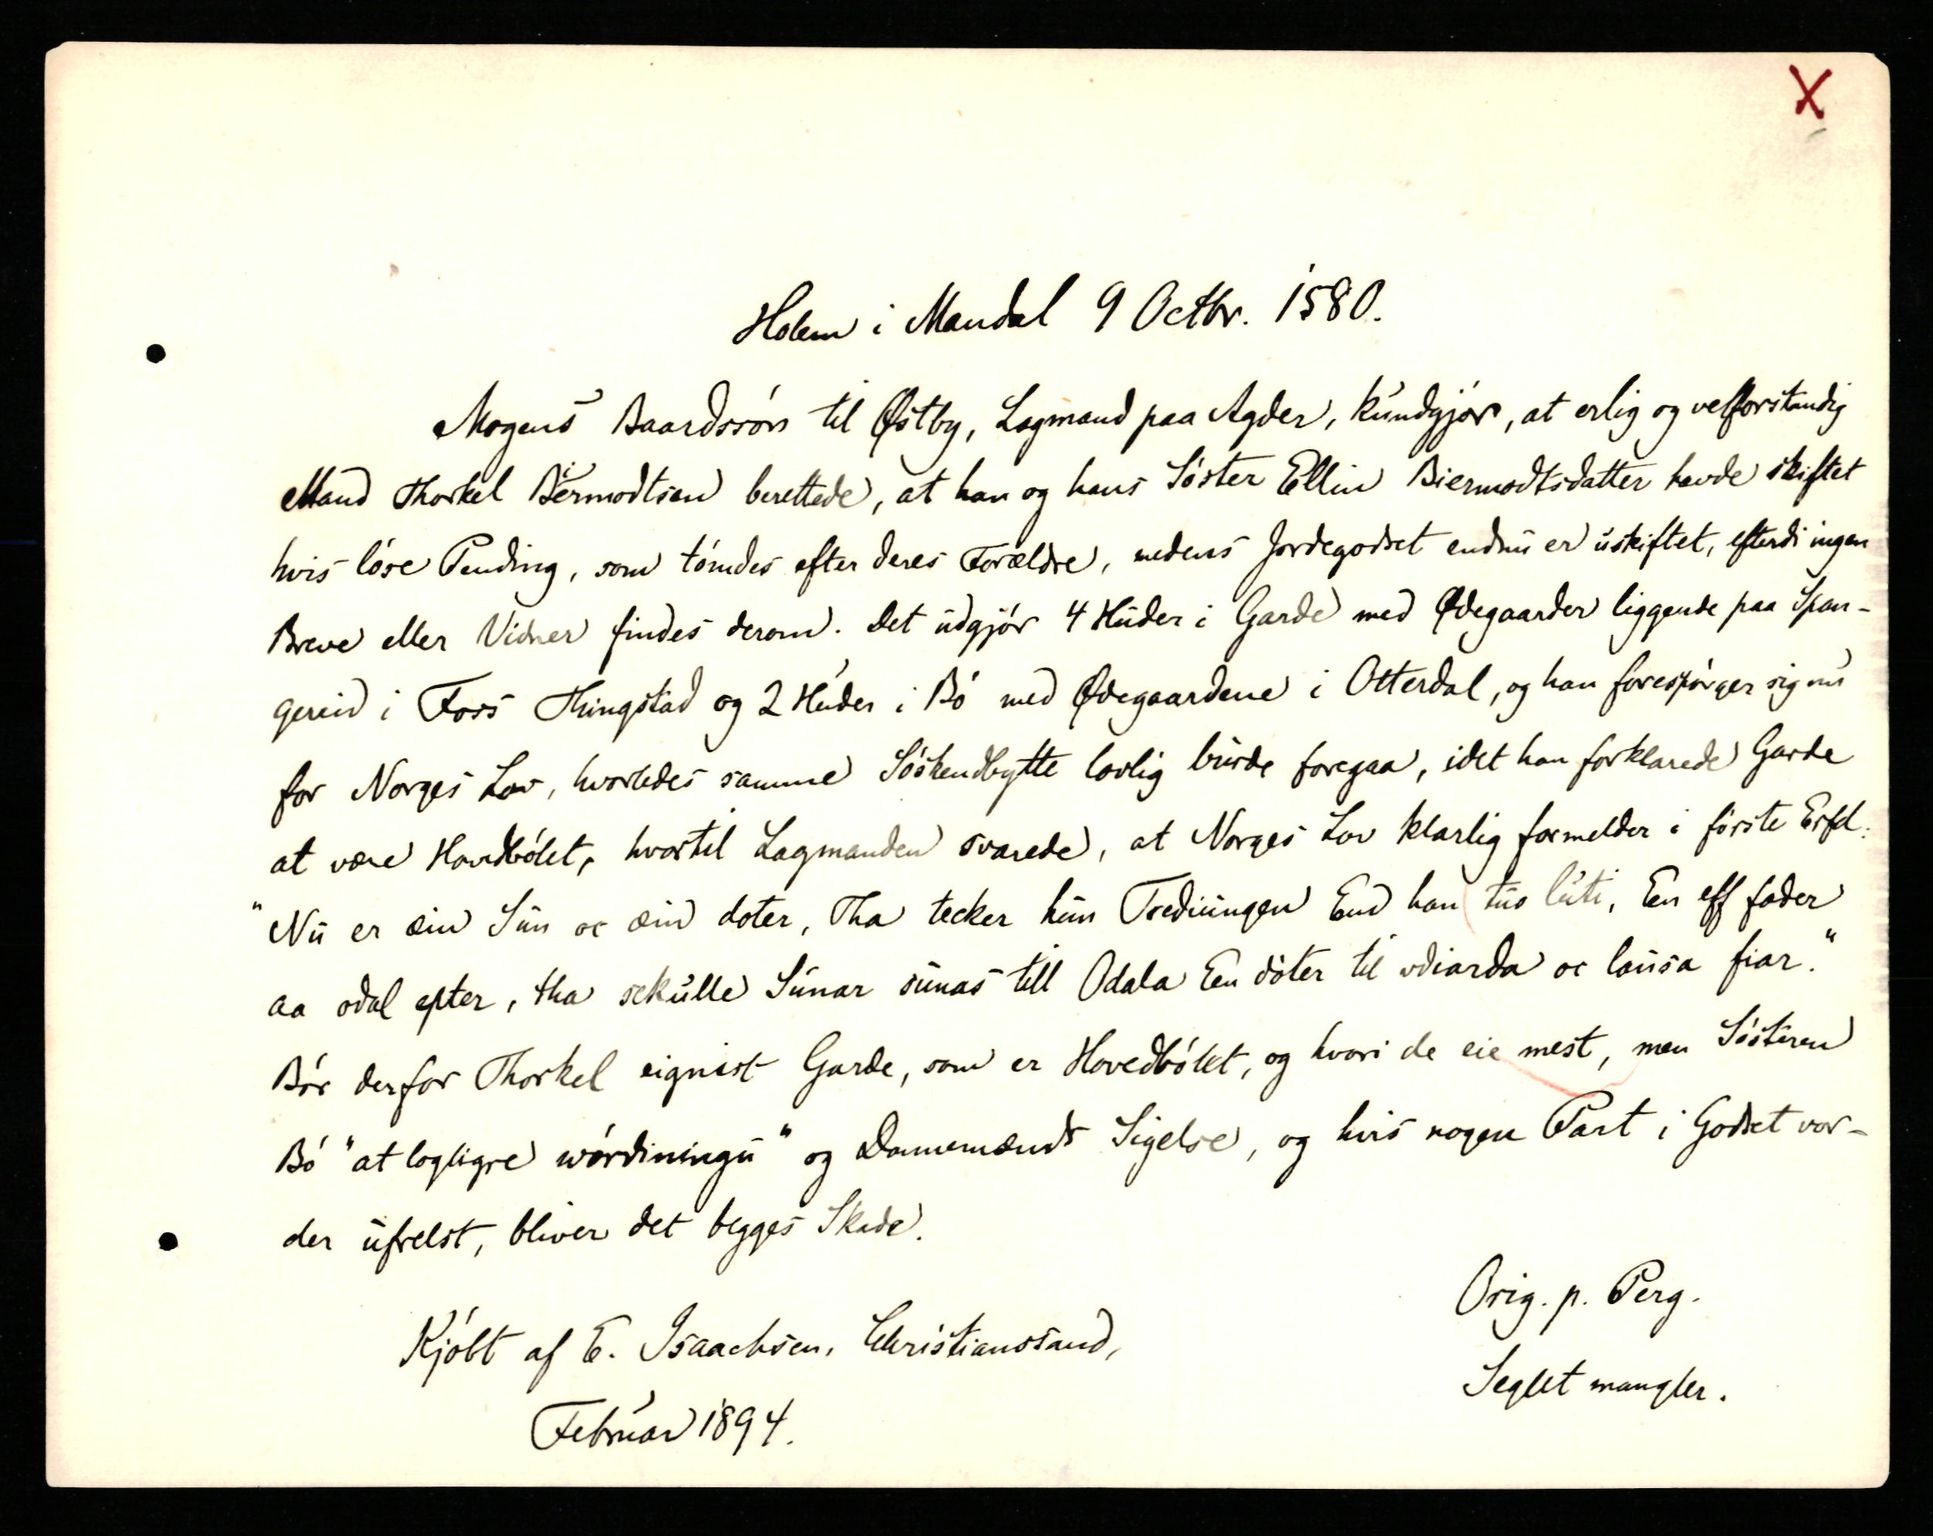 X
Holem i Mandal 9 Octbr. 1580.
Mogens Baardssøn til Østby, Lagmand paa Agder, kundgjør, at erlig og velforstandig
Mand Thorkel Bermodtsen berettede, at han og hans Søster Ellin Biermodtsdatter havde skiftet
hvis løse Pending, som tømdes efter deres Forældre, medens Jordegodset endnu er uskiftet, efterdi ingen
Breve eller Vidner findes derom. Det udgjør 4 Huder i Garde med Ødegaarder liggende paa Span-
gereid i Foss Thingstad og 2 Huder i Bø med Ødegaardene i Otterdal, og han forespørger sig nu
for Norges Lov, hvorledes samme Søskendbytte lovlig burde foregaa, idet han forklarede Garde
at være Hovedbølet, hvortil Lagmanden svarede, at Norges Lov klarlig formelder i første Erfd:
"Nu er æin Sun oc æin doter, Tha tecker hun Trediungen End han tuo luti, En eff fader
aa odal epter, tha sckulle Sunar sunas till Odala Een døter til vdiarda oc lausa fiar."
Bør derfor Thorkel eignist Garde, som er Hovedbølet, og hvori de eie mest, men Søsteren
Bø "at logligre wørdiningu" og Dannemænds Sigelse, og hvis nogen Part i Godset vor-
der ufrelst, bliver det begges Skade.
Orig. p. Perg.
Kjøbt af E. Isaachsen, Christianssand,
Seglet mangler.
Februar 1894.